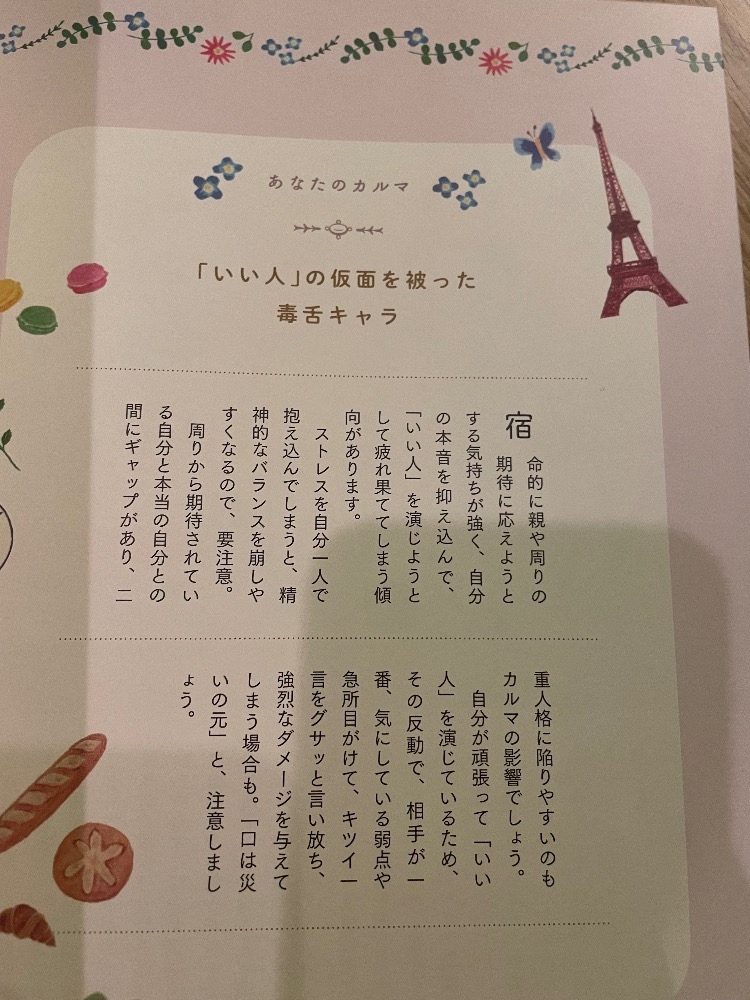 あなたのカルマ
「いい人」の仮面を被った
毒舌キャラ
宿命的に親や周りの
期待に応えようと
する気持ちが強く、自分
の本音を抑え込んで、
「いい人」を演じようと
して疲れ果ててしまう傾
向があります。
ストレスを自分一人で
抱え込んでしまうと、精
神的なバランスを崩しや
すくなるので、要注意。
周りから期待されてい
る自分と本当の自分との
間にギャップがあり、二
重人格に陥りやすいのも
カルマの影響でしょう。
自分が頑張って「いい
人」を演じているため、
その反動で、相手が一
番、気にしている弱点や
急所目がけて、キツイ一
言をグサッと言い放ち、
強烈なダメージを与えて
しまう場合も。「口は災
いの元」と、注意しまし
ょう。